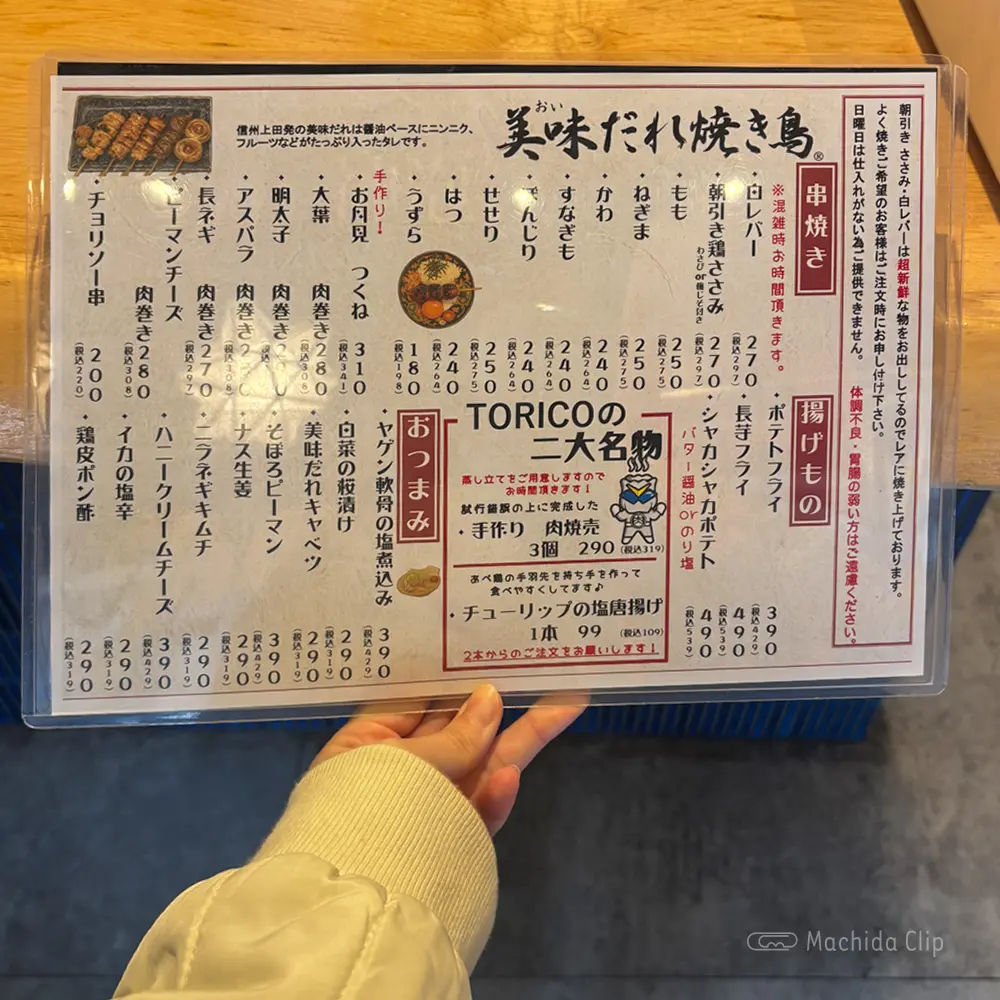 朝引き ささみ・白レバーは超新鮮な物をお出ししてるのでレアに焼き上げております。
よく焼きご希望のお客様はご注文時にお申し付け下さい。
日曜日は仕入れがない為ご提供できません。 体調不良・胃腸の弱い方はご遠慮ください。
おい
美味だれ焼き鳥®
信州上田発の美味だれは醤油ベースにニンニク、
フルーツなどがたっぷり入ったタレです。
串焼き
※混雑時お時間頂きます。
・白レバー 270 (税込297)
・朝引き鶏ささみ わさび or 梅じそ付き 270 (税込297)
・もも 250 (税込275)
・ねぎま 250 (税込275)
・かわ 240 (税込264)
・すなぎも 240 (税込264)
んじり 250 (税込275)
・せせり 250 (税込275)
・はつ 240 (税込264)
・うずら 180 (税込198)
手作り!
・お月見 つくね 310 (税込341)
・大葉 肉巻き 280 (税込308)
・明太子 肉巻き
・アスパラ 肉巻き
・長ネギ 肉巻き 270 (税込297)
ピーマンチーズ 肉巻き 280 (税込308)
・チョリソー串 200 (税込220)
揚げもの
・ポテトフライ 390 (税込429)
・長芋フライ 490 (税込539)
・シャカシャカポテト 490 (税込539)
バター醤油orのり塩
TORICOの
二大名物
蒸し立てをご用意しますので
お時間頂きます!
試行錯誤の上に完成した
・手作り 肉焼売
3個 290 (税込319)
あべ鶏の手羽先を持ち手を作って
食べやすくしてます♪
・チューリップの塩唐揚げ
1本 99 (税込109)
2本からのご注文をお願いします!
おつまみ
・ヤゲン軟骨の塩煮込み 390 (税込429)
・白菜の桜漬け 290 (税込319)
・美味だれキャベツ 290 (税込319)
・そぼろピーマン 390 (税込429)
・ナス生姜 290 (税込319)
・ニラネギキムチ 290 (税込319)
・ハニークリームチーズ 390 (税込429)
・イカの塩辛 290 (税込319)
・鶏皮ポン酢 290 (税込319)
Machida Clip